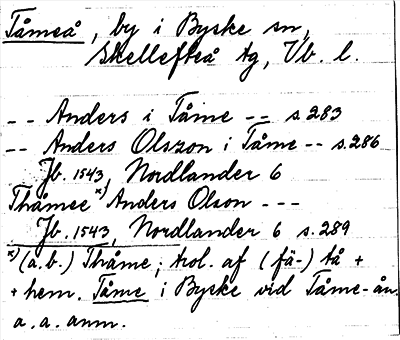 Tåmeå, by i Byske sn,
Skellefteå tg, Vb. l.
-- Anders i Tåme -- s. 283
-- Anders Olszon i Tåme -- s. 286
Jb. 1543, Nordlander 6
Thåmee x) Anders Olson ---
Jb. 1543, Nordlander 6 s. 289
x) (a.b.) Thåme; trol. af (få-) tå +
+ hem. Tåme i Byske vid Tåme-ån.
a. a. anm.